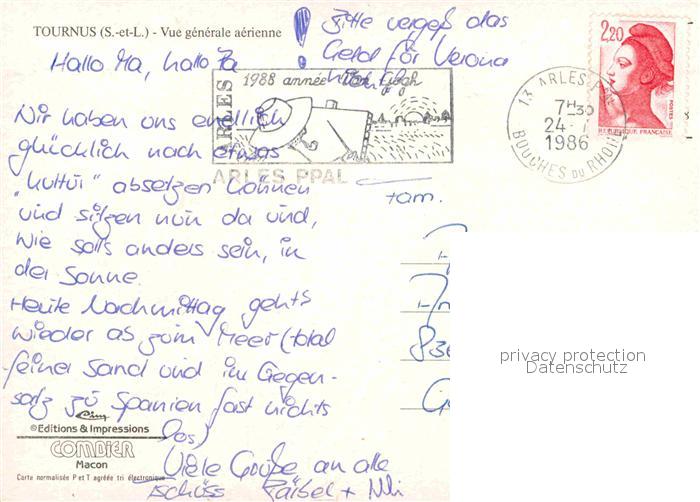 TOURNUS (S.-et-L.) - Vue générale aérienne
! Bitte vergeß das
Geld für Verena
nicht!
Hallo Ma, hallo Pa
Wir haben uns endlich
glücklich nach etwas
"Kultur" absetzen können
und sitzen nun da und,
wie solls anders sein, in
der Sonne.
Heute Nachmittag gehts
wieder ab zum Meer (total
feiner Sand und im Gegen-
satz zu Spanien fast nichts
los)
Viele Grüße an alle
Tschüss Bärbel +
ARLES
1988 année Van Gogh
ARLES PPAL
13 ARLES PPAL
7H30
24-7
1986
BOUCHES DU RHONE
2,20
POSTES
REPUBLIQUE FRANCAISE
Fam.
836
privacy protection
Datenschutz
Cim
©Editions & Impressions
COMBIER
Macon
Carte normalisée P et T agréée tri électronique